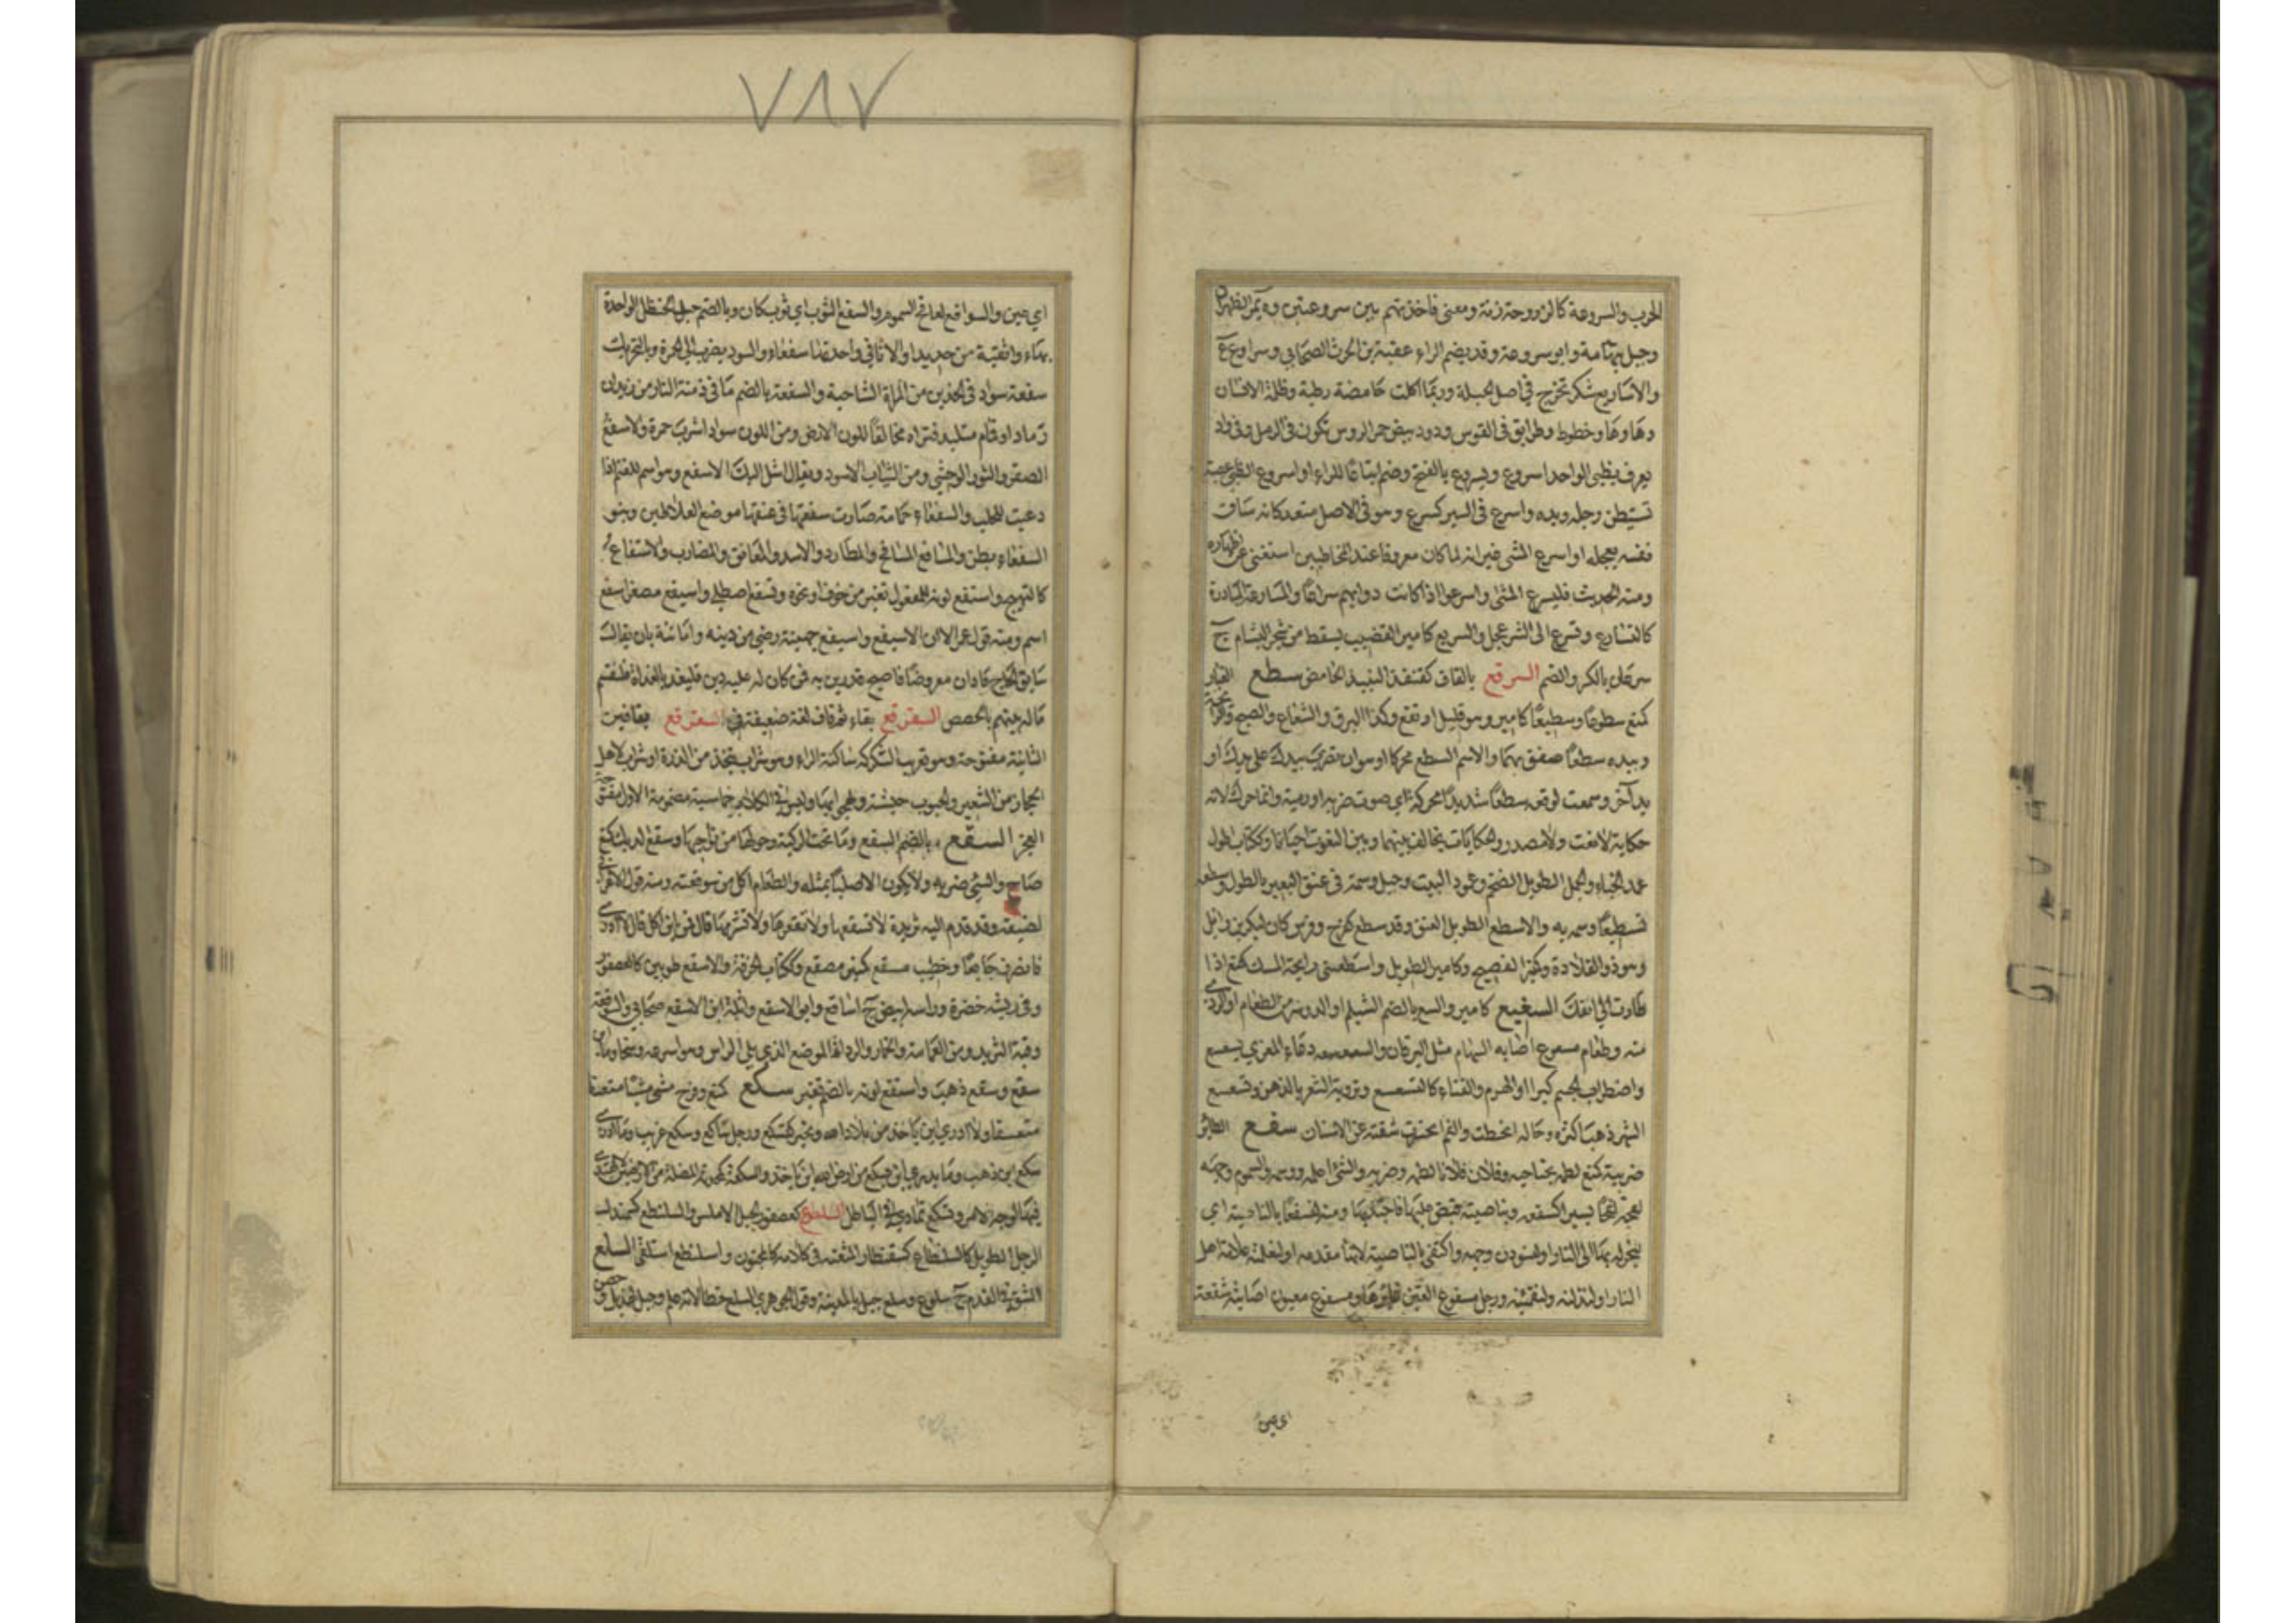 الحرب والسروعة كالزروحة زنة ومعنى فاخذ بهم بين سروعتين وة بمر الظهران
وجبل بتهامة وابو سروعة وقد يضم الراء عقبة بن الحرث الصحابي وسراوع ع
والاساريع شكر تخرج في اصل الحبلة وربما اكلت حامضة رطبة وظلم الاسنان
وماوها وخطوط وطرايق في القوس ودود بيض حمر الروس تكون في الرمل وفي واد
يعرف بظبي الواحد اسروع ويسروع بالفتح وضم اتباعا للراء او اسروع الظبي عصبة
تستبطن رجله ويده واسرع في السير كسرع وهو في الاصل متعد كانه ساق
نفسه بعجله او اسرع المشي غير انه لما كان معروفا عند المخاطبين استغنى عن اظهاره
ومنه الحديث فليسرع المشي واسرعوا اذا كانت دوابهم سراعا والمسارعة المبادرة
كالتسارع وتسرع الى الشر عجل والسريع كامير القضيب يسقط من شجر البشام ج
سرعان بالكسر والضم السرقع بالقاف كقنفذ النبيذ الحامض سطع الغبار
كمنع سطوعا وسطيعا كامير وهو قليل ارتفع وكذا البرق والشعاع والصبح والرايحة
وبيده سطعا صفق بهما والاسم السطع محركا او هو ان تضرب بيدك على يدك او
يد آخر وسمعت لوقعه سطعا شديدا محركة اي صوت ضربه او رمية وانما حرك لانه
حكاية لا نعت ولا مصدر والحكايات يخالف بينها وبين النعوت احيانا وككتاب اطول
عمد الخباء والجمل الطويل الضخم وعمود البيت وجبل وسمة في عنق البعير بالطول وسطعه
تسطيعا وسمه به والاسطع الطويل العنق وقد سطع كفرح وفرس كان لبكر بن وايل
وهو ذو القلادة وكمنبر الفصيح وكامير الطويل واسطعتني رايحة المسك كمنع اذا
طارت الى انفك السعيع كامير والسع بالضم الشيلم او الدوسر من الطعام او الردي
منه وطعام مسعوع اصابه السهام مثل اليرقان والسعسعة دعاء المعزى بسعسع
واضطراب الجسم كبرا او الهرم والفناء كالتسعسع وتروية الشعر بالدهن وتسعسع
الشهر ذهب اكثره وحاله انحطت والفم انحسرت شفته عن الاسنان سفع الطائر
ضريبته كمنع لطمه بجناحيه وفلان فلانا لطمه وضربه والشئ اعلمه ووسمه والسموم وجهه
لفحه لفحا يسيرا كسفعه وبناصيته قبض عليها فاجتذبها ومنه لنسفعا بالناصية اي
لنجرنه بها الى النار او لنسودن وجهه واكتفى بالناصية لانها مقدمه او لنعلمنه علامة اهل
النار او لنذلنه ولنقمئنه ورجل مسفوع العين غايرها ومسفوع معيون اصابته سفعة
اي عين
٧٨٧
اي عين والسوافع لوافح السموم والسفع الثوب اي ثوب كان وبالضم حب الحنظل الواحدة
بهاء واثفية من حديد او الاثافي واحدتها سفعاء والسود يضرب الى الحمرة وبالتحريك
سفعة سواد في الخدين من المراة الشاحبة والسفعة بالضم ما في دمنة الدار من زبل او
رماد او قمام متلبد فتراه مخالفا للون الارض ومن اللون سواد اشرب حمرة والاسفع
الصقر والثور الوحشي ومن الثياب الاسود ويقال اشل اليك الاسفع وهو اسم للغنم اذا
دعيت للحلب والسفعاء حمامة صارت سفعتها في عنقها موضع العلاطين وبنو
السفعاء بطن والمسافع المسافح والمطارد والاسد والمعانق والمضارب والاستفاع
كالتهبج واستفع لونه للمفعول تغير من خوف او نحوه وتسفع اصطلى واسيفع مصغر اسفع
اسم ومنه قول عمر الا ان الاسيفع اسيفع جهينة رضي من دينه وامانته بان يقال
سابق الحاج فادان معرضا فاصبح قد رين به فمن كان له عليه دين فليغد بالغداة فلنقسم
ماله بينهم بالحصص السفرقع بفاء ثم قاف لغة ضعيفة في السقرقع بقافين
الثانية مفتوحة وهو تعريب السكركه ساكنة الراء وهو شراب يتخذ من الذرة او شراب لاهل
الحجاز من الشعير والحبوب حبشية وقد لهجوا بها وليس في الكلام خماسية مضمومة الاول مفتوحة
العجز السقع بالضم الصقع وما تحت الركية وحولها من نواحيها وسقع الديك كمنع
صاح والشئ ضربه ولا يكون الا صلبا بمثله والطعام اكل من سوقعته ومنه قول الاعرابي
لضيفه وقد قدم اليه ثريدة لا تسقعها ولا تقعرها ولا تشرمها قال فمن اين آكل قال لا ادري
فانصرف جائعا وخطيب مسقع كمنبر مصقع وككتاب الخرقة والاسقع طوير كالعصفور
وفي ريشه خضرة وراسه ابيض ج اساقع وابو الاسقع واثلة بن الاسقع صحابي والسوقعة
وقبة الثريد ومن العمامة والخمار والرداء الموضع الذي يلي الراس وهو اسرعه وسخا وما ادري اين
سقع وسقع ذهب واستقع لونه بالضم تغير سكع كمنع وفرح مشى مشيا متعسفا
متعسفا ولا ادري اين ياخذ من بلاد الله وتحير كتسكع ورجل ساكع وسكع غريب وما ادري
سكع اين ذهب وما يدري اين يسكع من ارض الله اين ياخذ والمسكعة كمحدثة المضلة من الارضين لا يهتدى
فيها لوجه الامر وتسكع تمادى في الباطل السلطوع كعصفور الجبل الاملس والسلنطع كسمندل
الرجل الطويل كالسلنطاع كسقنطار والمتعته في كلامه كالمجنون واسلنطع استلقى السلع
الشق في القدم ج سلوع وسلع جبل بالمدينة وقول الجوهري السلع خطا لانه علم وجبل لهذيل وحصن